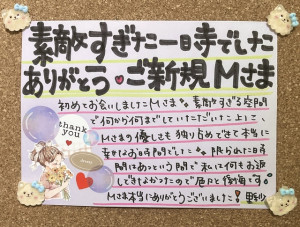 素敵すぎた一日寺でした
ありがとう♥ご新規Mさま
初めてお会いしましたMさま 素敵すぎる空間
で何から何までしていただいた上に
Mさまの優しさを独り占めできて本当に
幸せなお時間でした 限られたお時
間はあっという間で 私に何もお返
しできなかったので
Mさま本当にありがとうございました!
thank
you